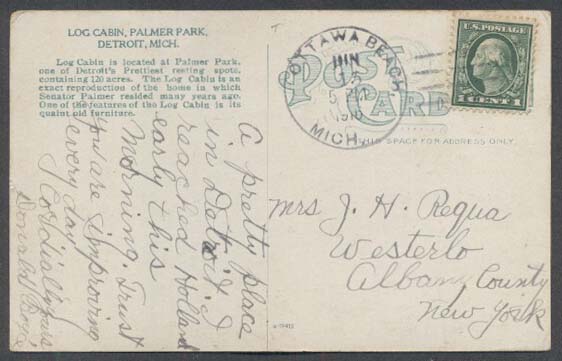 LOG CABIN, PALMER PARK,
DETROIT, MICH.
Log Cabin is located at Palmer Park,
one of Detroit's Prettiest resting spots,
containing 120 acres. The Log Cabin is an
exact reproduction of the home in which
Senator Palmer resided many years ago.
One of the features of the Log Cabin is its
quaint old furniture.
A pretty place
in Detroit. I
reached Holland
early this
morning. Trust
you are improving
every day.
Cordially yours
Donald
POST
CARD
THIS SPACE FOR ADDRESS ONLY
OTTAWA BEACH
JUN
MICH.
U.S. POSTAGE
1 CENT 1
Mrs J. H. Requa
Westerlo
Albany County
New York